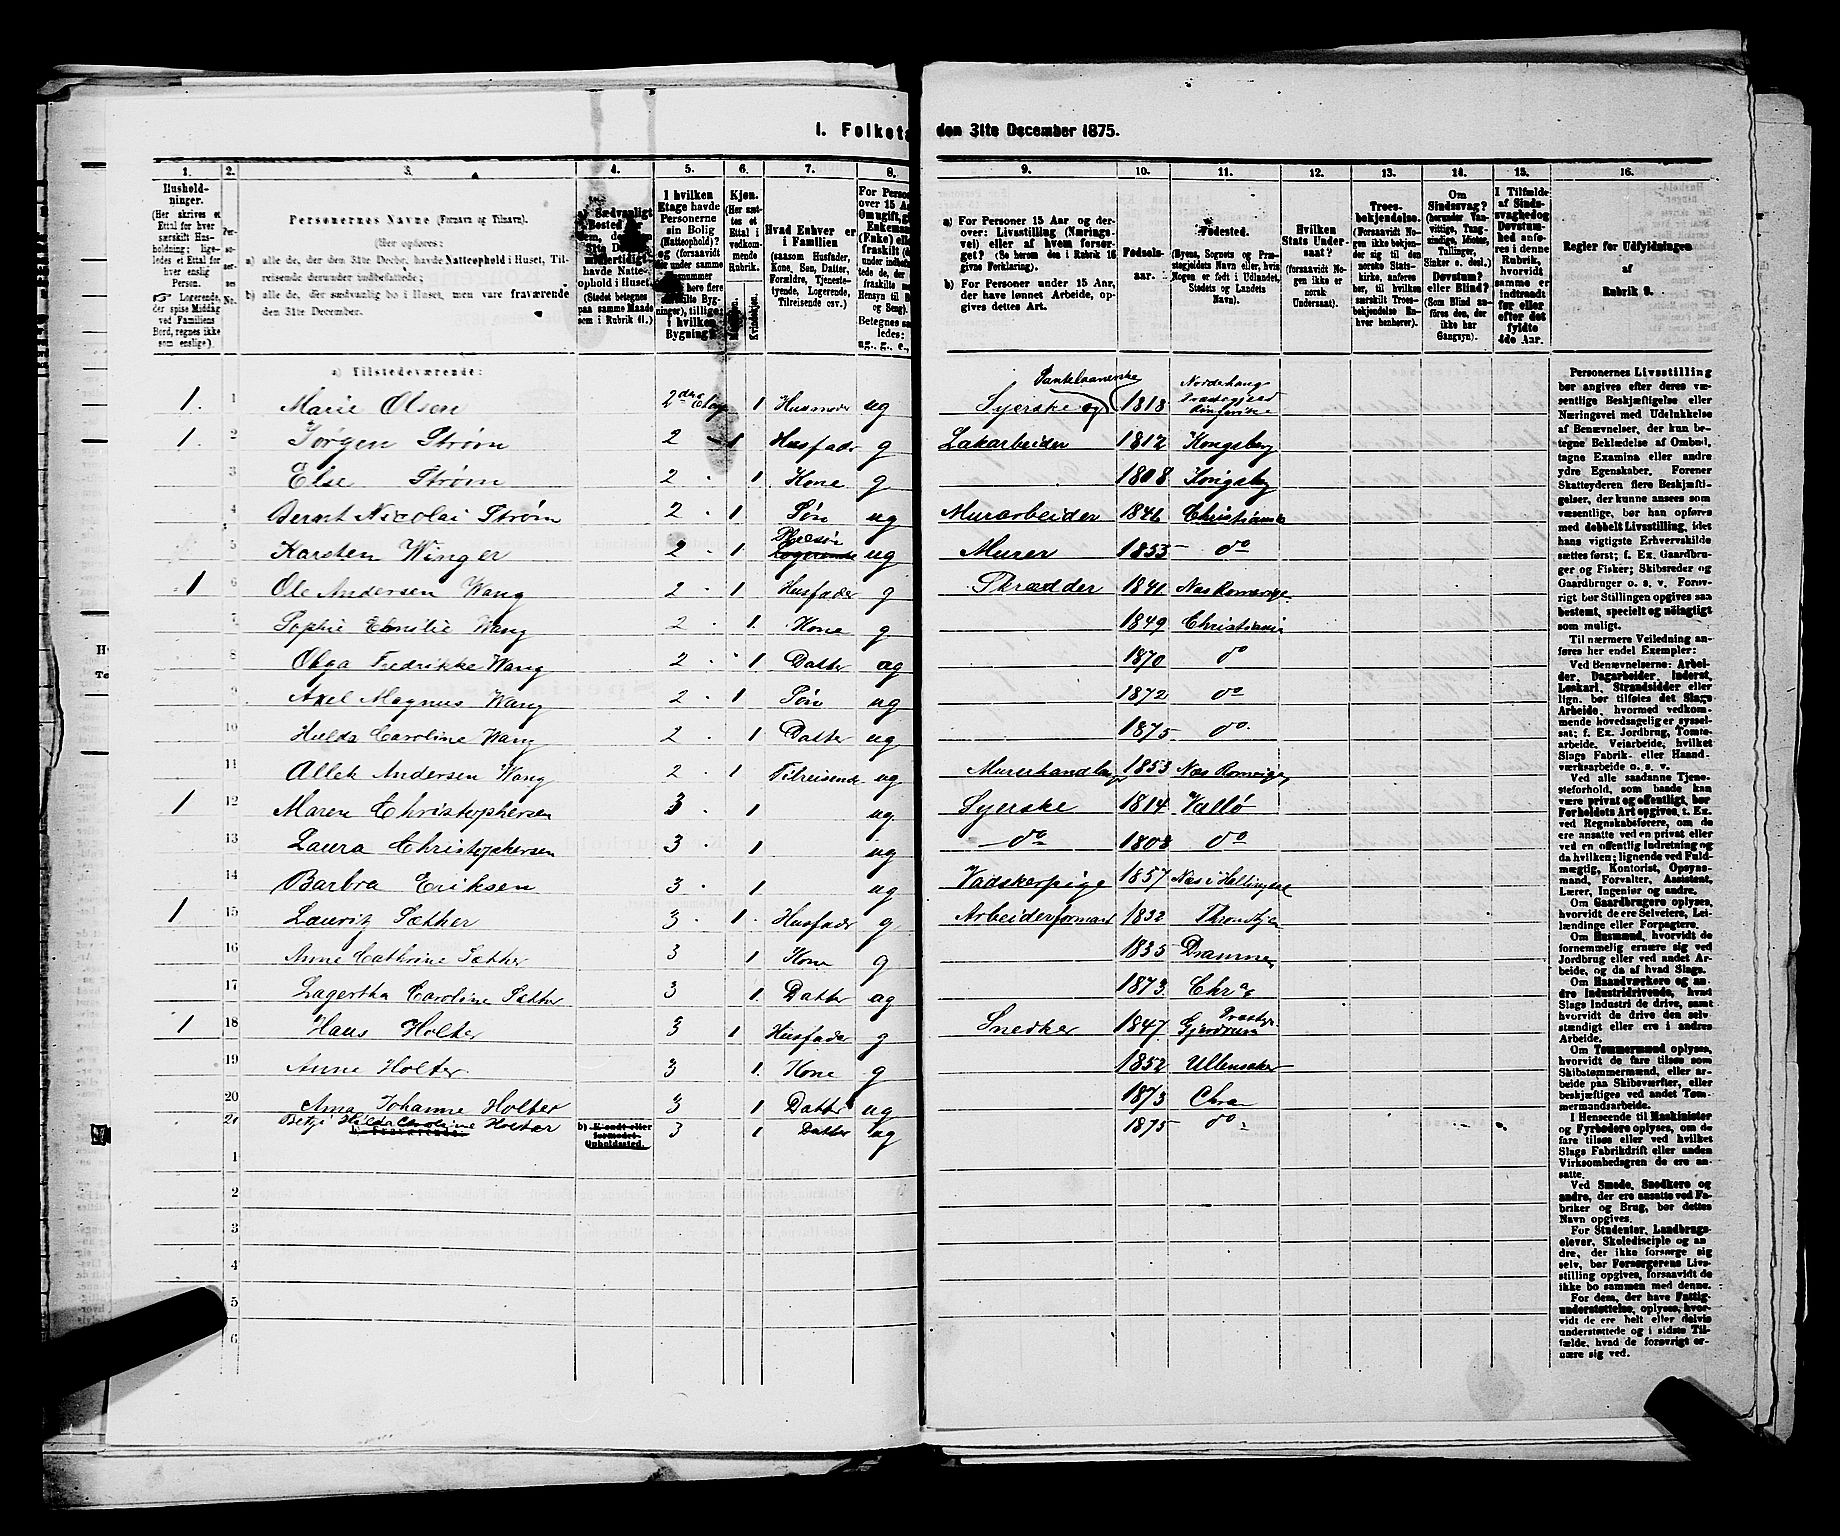 I. Folketæ den 31te December 1875.
1. 2. 3. 4. 5. 6. 7. 8. 9. 10. 11. 12. 13. 14. 15. 16.
Hushold-
ninger.
(Her skrives et
Ettal for hver
særskilt Hus-
holdning; lige-
ledes et Ettal for
hver enslig
Person.
Logerende,
der spise Middag
ved Familiens
Bord, regnes ikke
som enslige).
Personernes Navne (Fornavn og Tilnavn).
(Her opføres:
a) alle de, der den 31te Decbr. havde Natteophold i Huset, Til-
reisende derunder indbefattede;
b) alle de, der sædvanlig bo i Huset, men vare fraværende
den 31te December.
I hvilken
Etage havde
Personerne
sin Bolig
(Natteophold)?
og (forsaavidt
Kjøn.
(Her sæt-
tes et
Ettal i
vedkom-
mende
Rubrik.
Kvindekjøn.
Hvad Enhver er
i Familien
(saasom Husfader,
Kone, Søn, Datter,
Forældre, Tjeneste-
tyende, Logerende,
Tilreisende osv.)
a) For Personer 15 Aar og der-
over: Livsstilling (Nærings-
vei) eller af hvem forsør-
get? (Se herom den i Rubrik 16
givne Forklaring).
b) For Personer under 15 Aar,
der have lønnet Arbeide, op-
gives dettes Art.
Fødsels-
aar.
Fødested.
(Byens, Sognets og Præ-
stegjeldets Navn eller, hvis
Nogen er født i Udlandet,
Stedets og Landets
Navn).
Hvilken
Stats Under-
saat?
(forsaavidt No-
gen ikke er
norsk
Undersaat).
Troes-
bekjendelse.
(Forsaavidt No-
gen ikke bekjen-
der sig til den
norske Stats-
kirke, anføres
her, til hvilken
særskilt Troes-
bekjendelse En-
hver henhører).
Om
Sindssvag?
(herunder Van-
vittige, Tung-
sindige, Idioter,
Tullinger,
Sinker o. desl.)
Døvstum?
eller Blind?
(Som Blind an-
føres den, der
ikke har
Gangsyn).
I Tilfælde
af Sinds-
svaghed og
Døvstum-
hed anfø-
res i denne
Rubrik,
hvorvidt
samme er
indtraadt
før eller
efter det
fyldte
4de Aar.
Regler for Udfyldningen
af
Rubrik 9.
a) Tilstedeværende:
1. 1 Marie Olsen 2den Etage 1 Husmoder ug Syerske og 1818
1. 2 Jørgen Strøm 2 1 Husfader g Lakarbeider 1812 Kongsberg
3 Else Strøm 2 1 Kone g 1808 Kongsberg
4 Bernt Nicolai Strøm 2 1 Søn ug Murarbeider 1846 Christiania
5 Karsten Winger 2 1 Logerende ug Murer 1853 do
1 6 Ole Andersen Wang 2 1 Husfader g Skrædder 1841 Nas Romerige
7 Sophie Emilie Wang 2 1. Kone g 1849 Christiania
8 Olga Fredrikke Wang 2 1. Datter ug 1870 do
9 Axel Magnus Wang 2 1 Søn ug 1872 do
10 Hulda Caroline Wang 2 1 Datter ug 1875 do
11 Andersen Wang 2 1 Tilreisende ug Murerhandlanger 1853 Nas Romerige
1 12 Maren Christophersen 3 1 ug Syerske 1814 Vallø
13 Laura Christophersen 3 1 ug do 1803 do
14 Barbra Eriksen 3 1 ug Vadskerpige 1857 Nas i Hallingdal
1 15 Lauritz Sæther 3 1. Husfader g Arbeiderformand 1832 Throndhjem
16 Anne Cathrine Sæther 3 1. Kone g 1835 Drammen
17 Lagertha Caroline Sæther 3 1. Datter ug 1873. Chra
1 18 Hans Holter 3 1 Husfader g Snedker 1847. Gjerdrum
19 Anne Holter 3 1. Kone g 1852 Ullensaker
20 Anna Johanne Holter 3 1 Datter ug 1873 Chra
21 Betzi Hilda Caroline Holter 3 1 Datter ug 1875 do
b) Fraværende.
b) Kjendt eller
formodet
Opholdssted.
1
2
3
4
5
6
Personernes Livsstilling
bør angives efter deres væ-
sentlige Beskjæftigelse eller
Næringsvei med Udelukkelse
af Benævnelser, der kun be-
tegne Beklædelse af Ombud,
tagne Examina eller andre
ydre Egenskaber. Forener
Skatteyderen flere Beskjæfti-
gelser, der kunne ansees som
væsentlige, bør han opføres
med dobbelt Livsstilling, idet
hans vigtigste Erhvervskilde
sættes først; f. Ex. Gaardbru-
ger og Fisker; Skibsreder og
Gaardbruger o. s. v. Forøv-
rigt bør Stillingen opgives saa
bestemt, specielt og nøiagtigt
som muligt.
Til nærmere Veiledning an-
føres her endel Exempler:
Ved Benævnelserne: Arbei-
der, Dagarbeider, Inderst,
Løskarl, Strandsidder eller
lign. bør tilføies det Slags
Arbeide, hvormed vedkom-
mende hovedsagelig er syssel-
sat; f. Ex. Jordbrug, Tomte-
arbeide, Veiarbeide, hvilket
Slags Fabrik- eller Haand-
værksarbeide o. s. v.
Ved alle saadanne Tjene-
steforhold, som baade kan
være privat og offentligt, bør
Forholdets Art opgives, t. Ex.
ved Regnskabsførere, om de
ere ansatte ved en privat eller
ved en offentlig Indretning og
da hvilken; lignende ved Fuld-
mægtig, Kontorist, Opsyns-
mand, Forvalter, Assistent,
Lærer, Ingeniør og andre.
Om Gaardbrugere oplyses,
hvorvidt de ere Selveiere, Lei-
lændinge eller Forpagtere.
Om Husmænd, hvorvidt de
fornemmelig ernære sig ved
Jordbrug eller ved andet Ar-
beide, og da af hvad Slags.
Om Haandværkere og an-
dre Industridrivende, hvad
Slags Industri de drive, samt
hvorvidt de drive den selv-
stændigt eller ere i andres
Arbeide.
Om Tømmermænd oplyses,
hvorvidt de fare tilsøs som
Skibstømmermænd, eller ar-
beide paa Skibsværfter, eller
beskjæftiges ved andet Tøm-
mermandsarbeide.
I Henseende til Maskinister
og Fyrbødere oplyses, om de
fare tilsøs eller ved hvilket
Slags Fabrikdrift eller anden
Virksomhedsgren de ere an-
satte.
Ved Smede, Snedkere og
andre, der ere ansatte ved Fa-
briker og Brug, bør dettes
Navn opgives.
For Studenter, Landbrugs-
elever, Skoledisciple og an-
dre, der ikke forsørge sig
selv, bør Forsørgerens Livs-
stilling opgives, forsaavidt de
ikke bo sammen med denne.
For dem, der have Fattig-
understøttelse, oplyses, hvor-
vidt de ere helt eller delvis
understøttede og i sidste Til-
fælde, hvad de forøvrigt er-
nære sig ved.